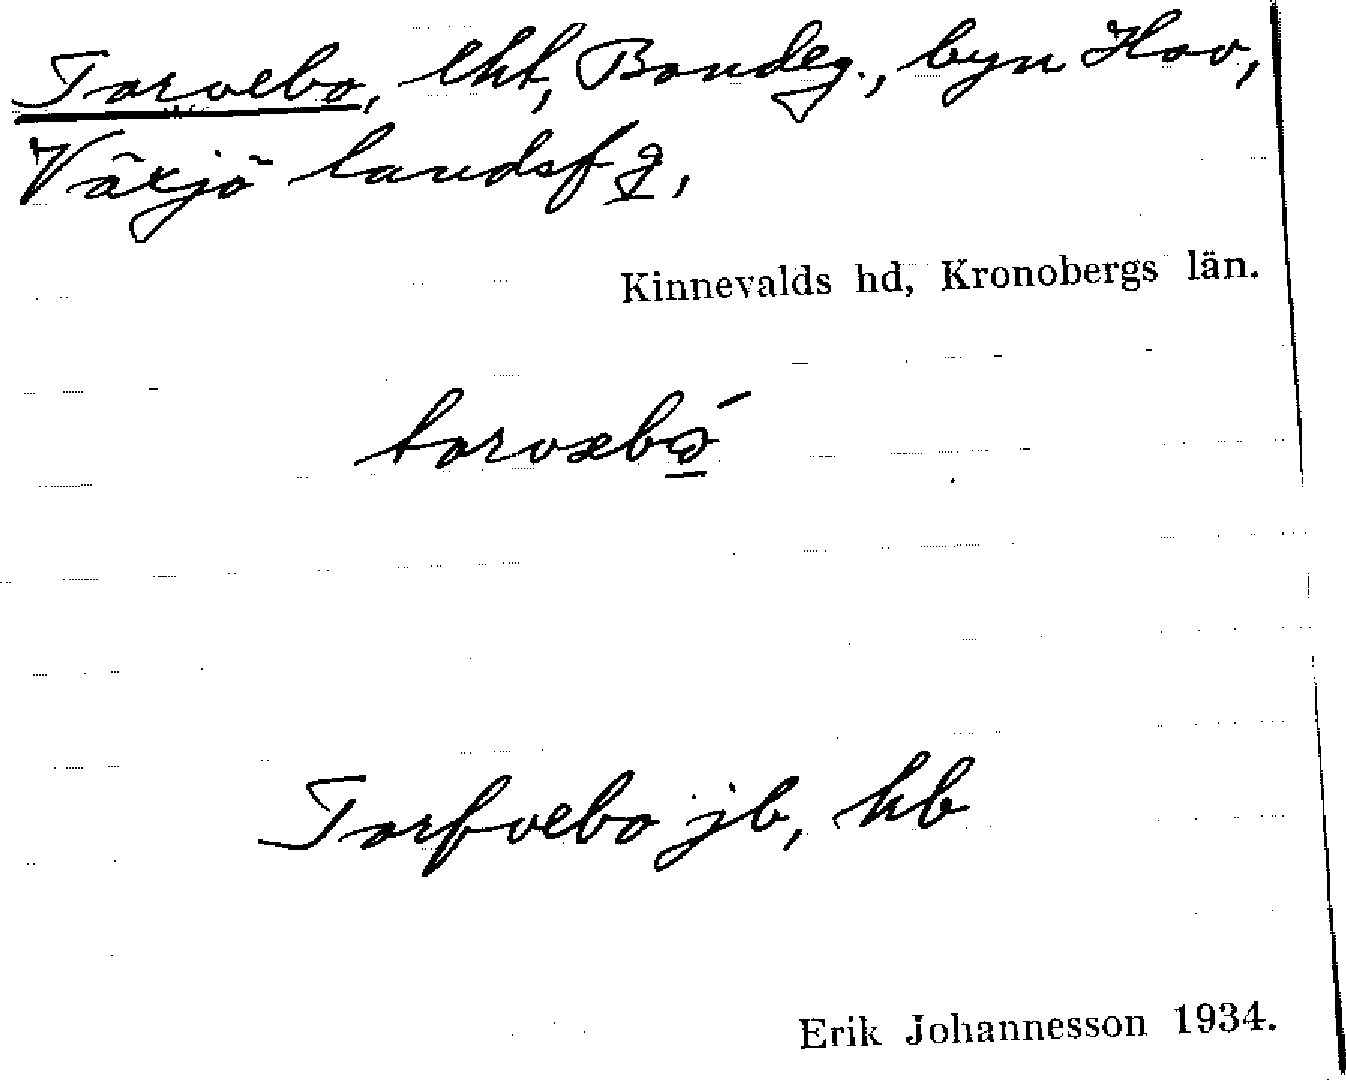 Torvebo, lht, Bondeg., byn Hov,
Växjö landsf g,
Kinnevalds hd, Kronobergs län.
torvæbó
Torfvebo jb, hb
Erik Johannesson 1934.